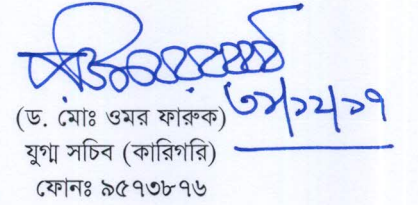 (ড. মোঃ ওমর ফারুক)
যুগ্ম সচিব (কারিগরি)
ফোনঃ ৯৫৭৩৮৭৬